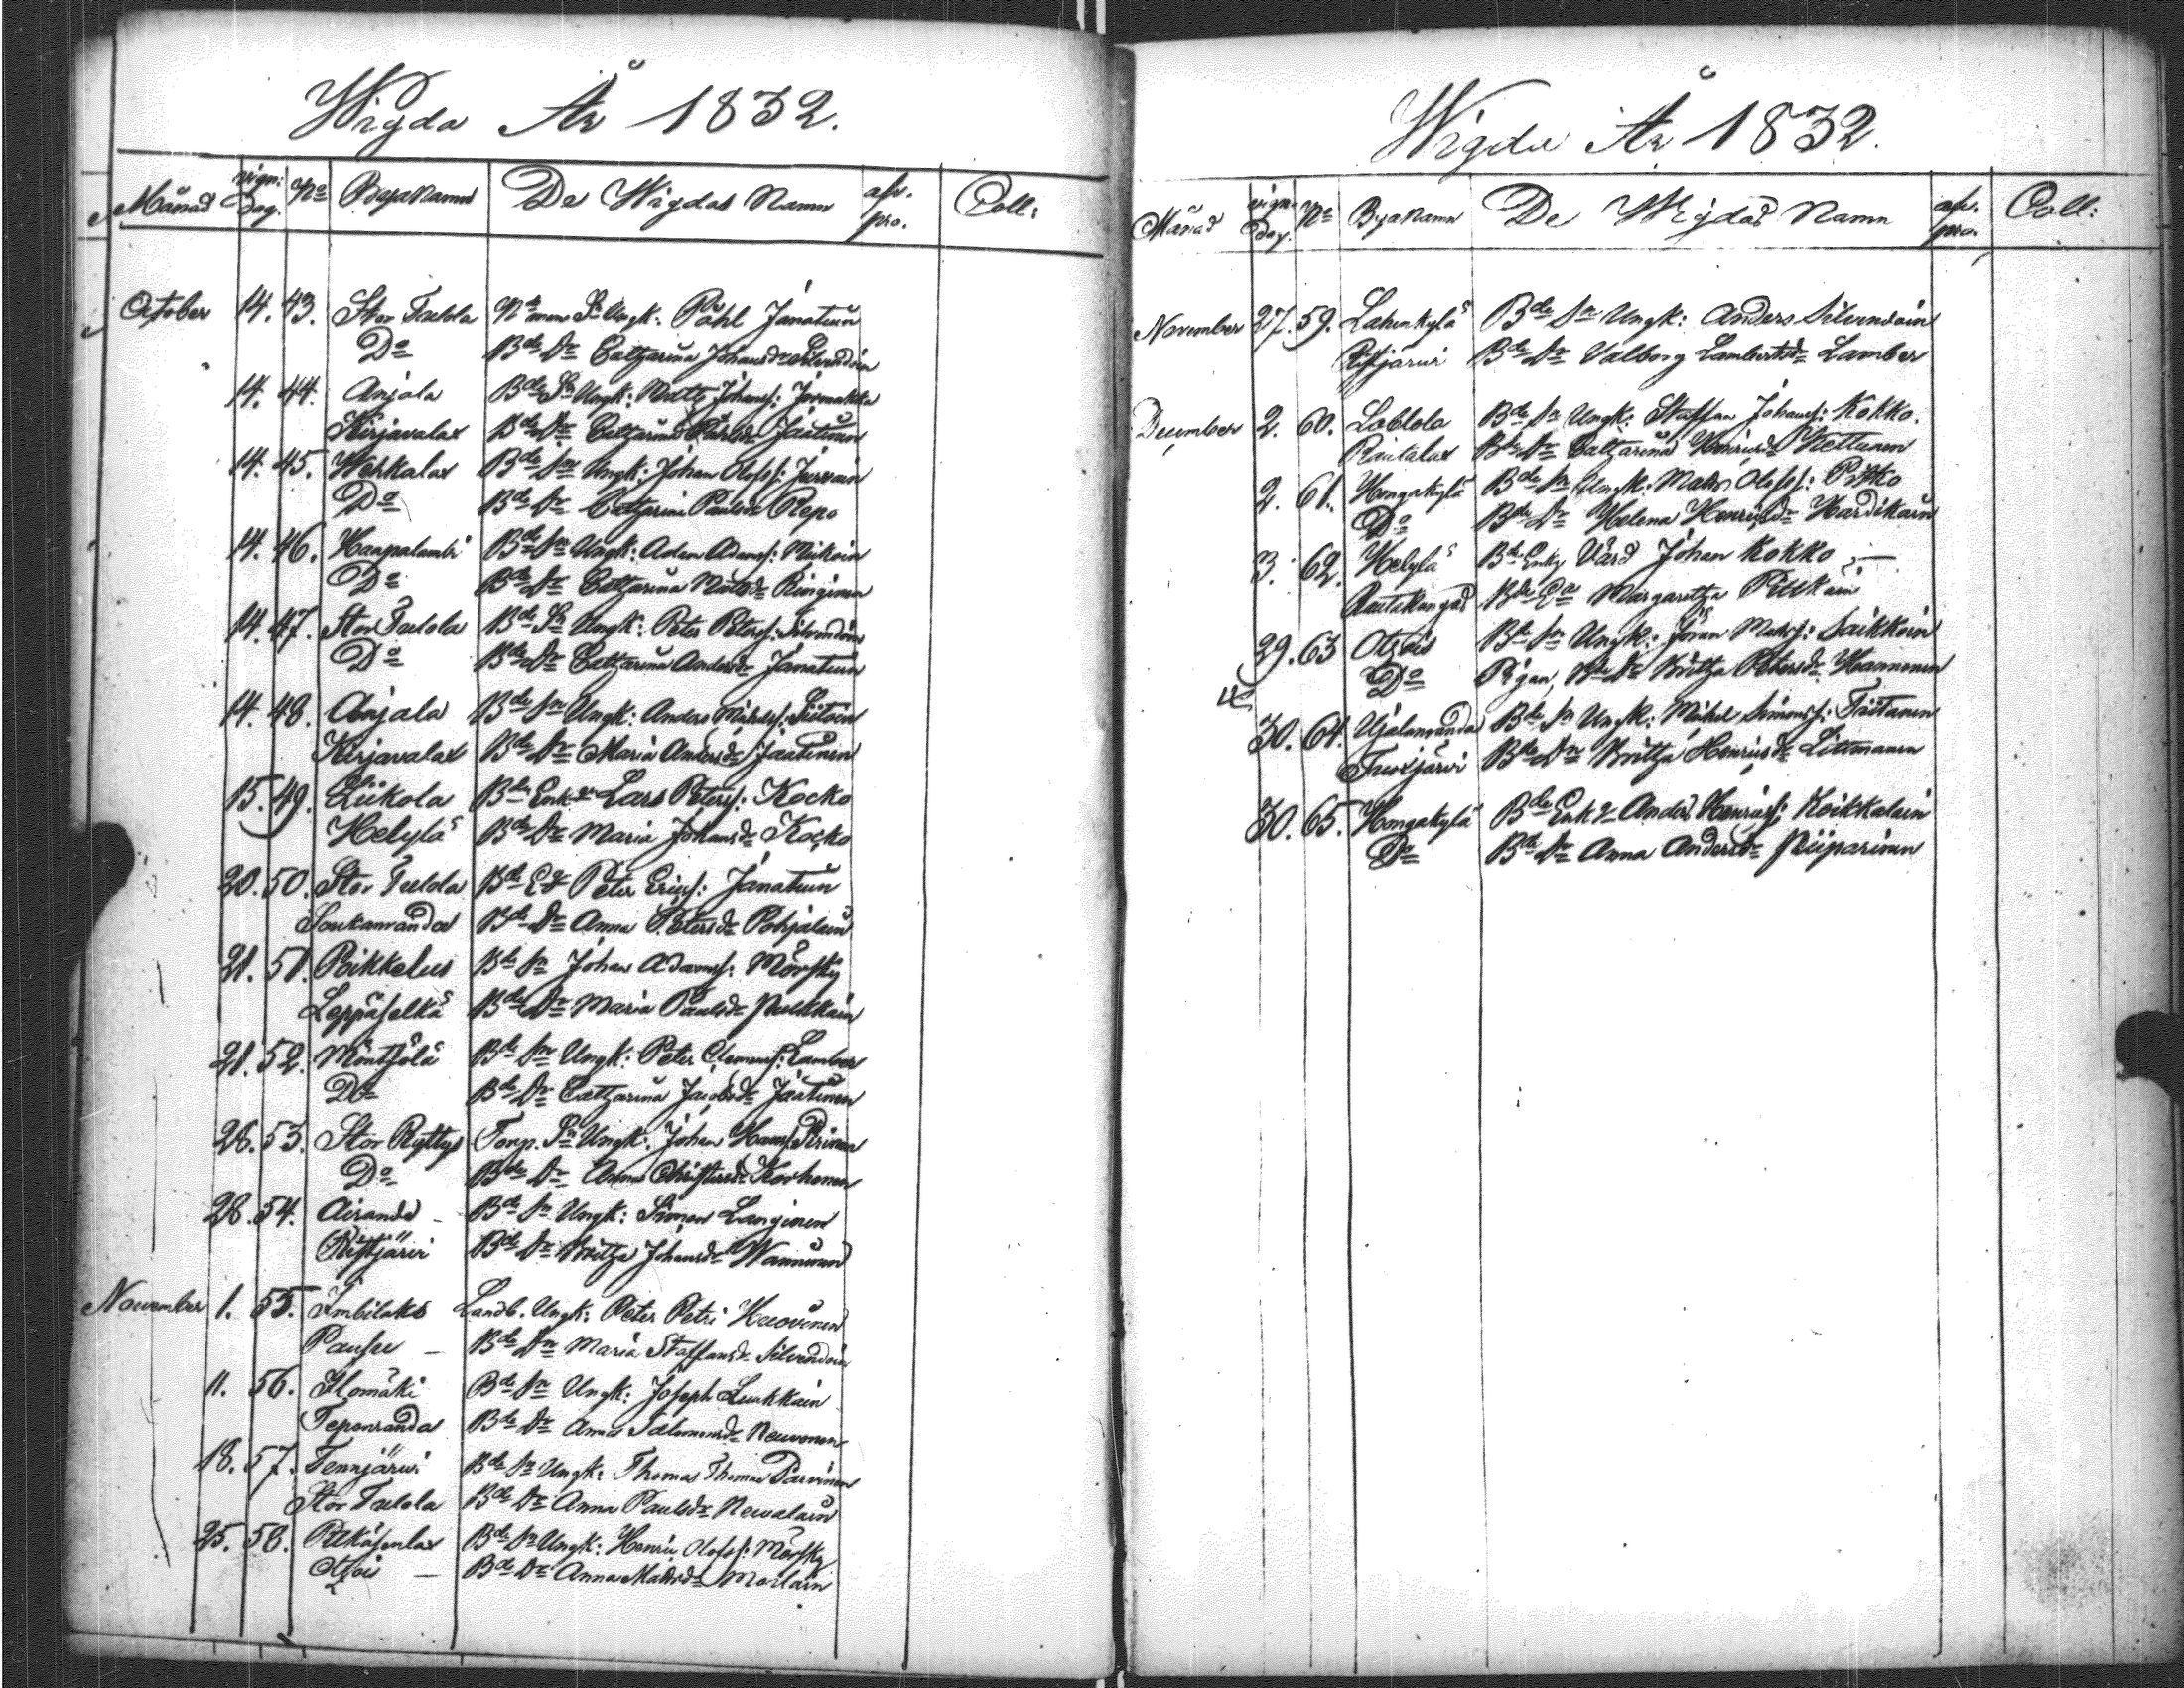 Wigda År 1832.
Månad wign: dag. No Byanamn De Wigdas Namn afv. pro. Coll:
October 14. 43. Stor Tulola Nämnm. Sn Ungk: Påhl Jänatuin
Do Bde Dr Catharina Johansdr Silvendoin
14. 44. Anjala Bde Sn Ungk: Matts Johanss: Jormakka
Kirjavalax Bde Dr Catharina Jäätinen
14. 45. Werkalax Bde Sn Ungk: Johan Olofss:
Do Bde Dr Catharina Paulsdr Repo
14. 46. Haapalambi Bde Sn Ungk: Adam Adamss: Mikoin
Do Bde Dr Catharina Mattsdr Ringinen
14. 47. Stor Tulola Bde Sn Ungk: Peter Peterss: Silvendoin
Do Bde Dr Catharina Andersdr Jänatuin
14. 48. Anjala Bde Sn Ungk: Anders Michelss:
Kirjavalax Bde Dr Maria Andersdr Jäätinen
15. 49. Liikola Bde Enkl Lars Peterss: Kocko
Helylä Bde Dr Maria Johansdr Kocko
20. 50. Stor Tulola Bde Peter Ericss: Jänatuin
Soukanranda Bde Dr Anna Petersdr Pohjalain
21. 51. Rikkelus Bde Sn Johan Adamss: Mörsky
Leppäselkä Bde Dr Maria Paulsdr Pulkkain
21. 52. Möntsölä Bde Sn Ungk: Peter Clemenss: Lamber
Do Bde Dr Catharina Jacobsdr Jäätinen
28. 53. Stor Ryttys Torp. Sn Ungk: Johan Hanss: Hirvinen
Do Bde Dr Anna Christersdr Korhonen
28. 54. Airanda Bde Sn Ungk: Simon Langinen
Ristjärvi Bde Dr Britha Johansdr Wanninen
November 1. 55. Imbilaks Landb. Ungk: Peter Petri Huovinen
Paussu Bde Dr Maria Staffansdr Silvendoin
11. 56. Ilomäki Bde Sn Ungk: Joseph Luukkain
Teponranda Bde Dr Anna Salomonsdr Neuvonen
18. 57. Tennjärwi Bde Sn Ungk: Thomas Thomass Parvinen
Stor Tulola Bde Dr Anna Paulsdr Newalain
25. 58. Pitkäsenlax Bde Sn Ungk: Henric Olofss: Mörsky
Otsois Bde Dr Anna Mattsdr
Wigda År 1832.
Månad wign. dag. No Byanamn De Wigdas Namn afv. pro. Coll:
November 27. 59. Lahenkylä Bde Sn Ungk: Anders Silvendoin
Ristjärvi Bde Dr Valborg Lambertsdr Lamber
December 2. 60. Loblola Bde Sn Ungk: Staffan Johanss: Kokko.
Rautalax Bde Dr Catharina Henricsdr Kettunen
2. 61. Hongakylä Bde Sn Ungk: Matts Olofss: Pitko
Do Bde Dr Helena Henricsdr Hardikain
3. 62. Helylä Bde Enkl Vård Johan Kokko
Rautakangas Bde Ea Margaretha Pitkain
29. 63 Otsois Bde Sn Ungk: Jöran Mattss: Saikkoin
Do Pigan, Bde Dr Britha Petersdr Hannonen
30. 64. Ujalanranda Bde Sn Ungk: Michel Simonss: Taitanen
Bde Dr Britha Henricsdr Littmanen
30. 65. Hongakylä Bde Enkl Anders Henricss: Koikkalain
Do Bde Dr Anna Andersdr Piiparinen